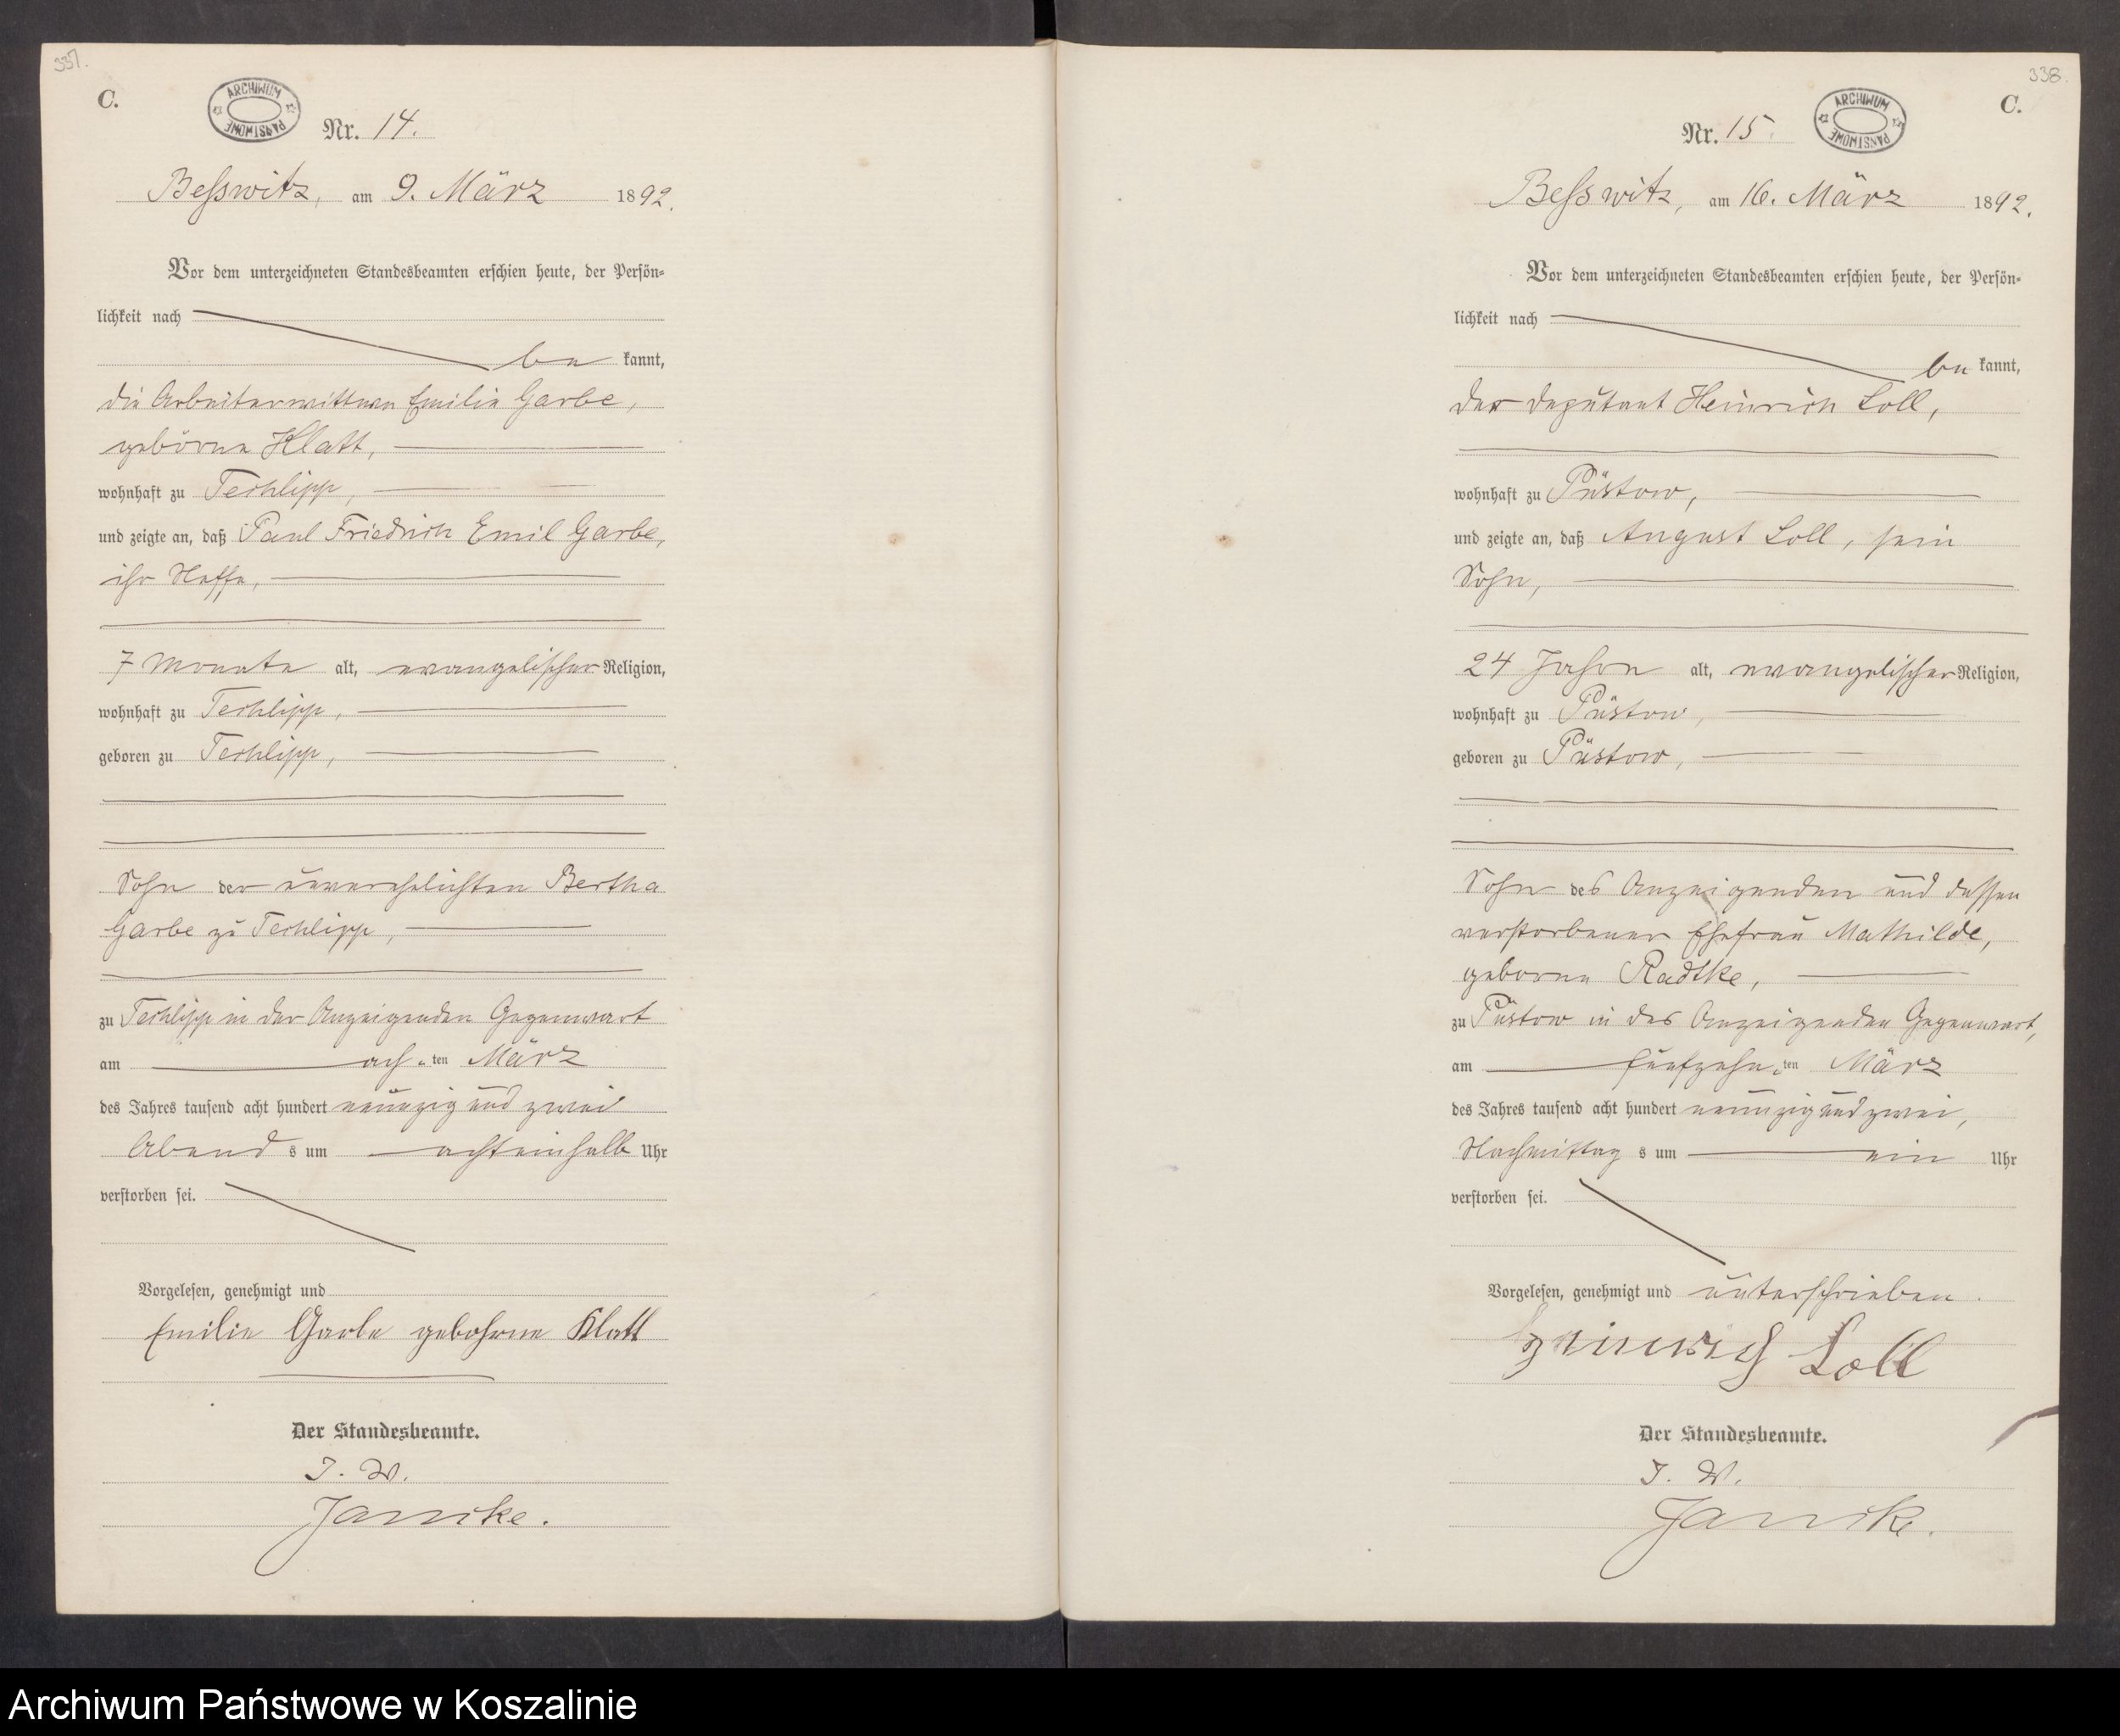 337.
C.
ARCHIWUM PAŃSTWOWE
Nr. 14.
Beßwitz, am 9. März 1892.
Vor dem unterzeichneten Standesbeamten erschien heute, der Persön-
lichkeit nach
be kannt,
die Arbeiterwittwe Emilie Garbe,
geborne Klatt,
wohnhaft zu Techlipp,
und zeigte an, daß Paul Friedrich Emil Garbe,
ihr Neffe,
7 Monate alt, evangelischer Religion,
wohnhaft zu Techlipp,
geboren zu Techlipp,
Sohn der unverehelichten Bertha
Garbe zu Techlipp,
zu Techlipp in der Anzeigenden Gegenwart
am ach-ten März
des Jahres tausend acht hundert neunzig und zwei
Abend s um achteinhalb Uhr
verstorben sei.
Vorgelesen, genehmigt und
Emilie Garbe gebohrne Klatt
Der Standesbeamte.
J. W.
338.
C.
ARCHIWUM PAŃSTWOWE
Nr. 15.
Beßwitz, am 16. März 1892.
Vor dem unterzeichneten Standesbeamten erschien heute, der Persön-
lichkeit nach
be kannt,
der Deputant Heinrich Loll,
wohnhaft zu Püstow,
und zeigte an, daß August Loll, sein
Sohn,
24 Jahre alt, evangelischer Religion,
wohnhaft zu Püstow,
geboren zu Püstow,
Sohn des Anzeigenden und dessen
verstorbener Ehefrau Mathilde,
geborne Radtke,
zu Püstow in des Anzeigenden Gegenwart,
am fünfzehn-ten März
des Jahres tausend acht hundert neunzig und zwei,
Nachmittag s um ein Uhr
verstorben sei.
Vorgelesen, genehmigt und unterschrieben.
Heinrich Loll
Der Standesbeamte.
J. W.
Archiwum Państwowe w Koszalinie